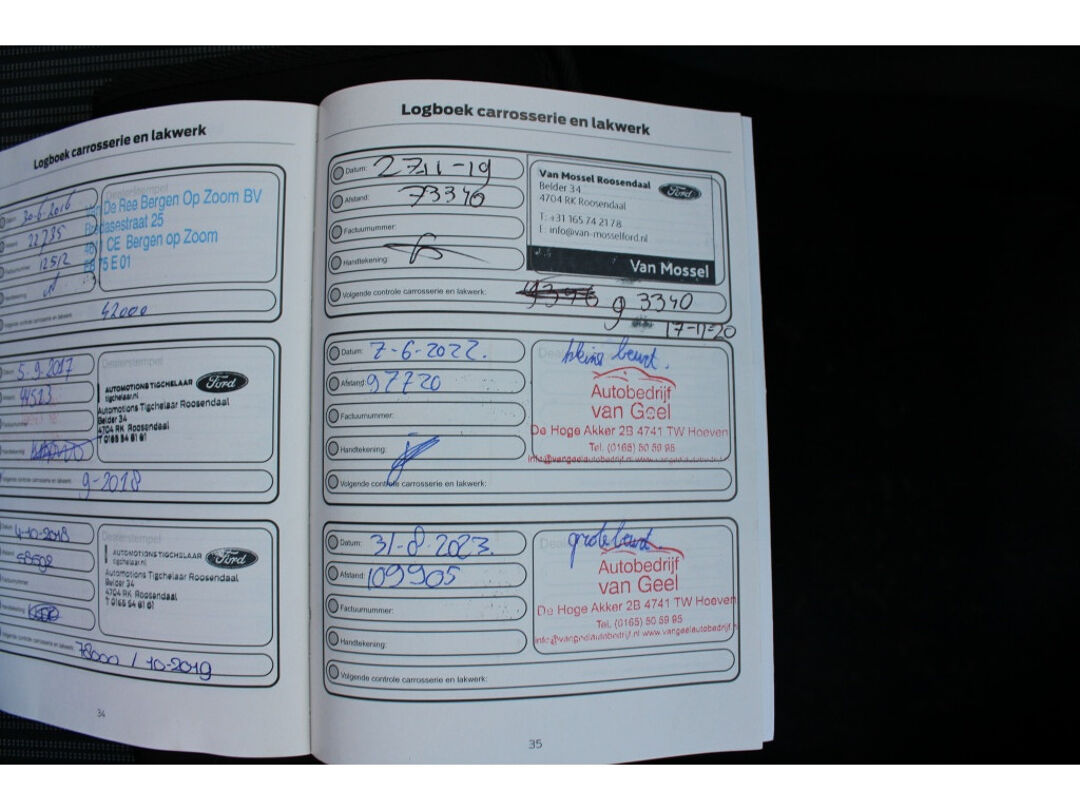 Logboek carrosserie en lakwerk
Datum: 30-6-2016
22735
Factuurnummer: 12512
Handtekening:
Volgende controle carrosserie en lakwerk: 42000
Dealerstempel
Van De Ree Bergen Op Zoom BV
Bredasestraat 25
CE Bergen op Zoom
75 E 01
Datum: 5-9-2017
Handtekening:
Volgende controle carrosserie en lakwerk: 9-2018
Dealerstempel
AUTOMOTIONS TIGCHELAAR Ford
tigchelaar.nl
Automotions Tigchelaar Roosendaal
Belder 34
4704 RK Roosendaal
T 0165 54 81 61
Datum: 4-10-2018
58598
Factuurnummer:
Handtekening:
Volgende controle carrosserie en lakwerk: 78000 / 10-2019
Dealerstempel
AUTOMOTIONS TIGCHELAAR Ford
tigchelaar.nl
Automotions Tigchelaar Roosendaal
Belder 34
4704 RK Roosendaal
T 0165 54 81 61
34
Logboek carrosserie en lakwerk
Datum: 27-11-19
Afstand: 73340
Factuurnummer:
Handtekening:
Volgende controle carrosserie en lakwerk: 93340
17-11-20
Van Mossel Roosendaal Ford
Belder 34
4704 RK Roosendaal
T: +31 165 74 21 78
E: info@van-mosselford.nl
Van Mossel
Datum: 7-6-2022.
Afstand: 97720
Factuurnummer:
Handtekening:
Volgende controle carrosserie en lakwerk:
kleine beurt.
Autobedrijf
van Geel
De Hoge Akker 2B 4741 TW Hoeven
Tel. (0165) 50 59 95
info@vangeelautobedrijf.nl www.vangeelautobedrijf.nl
Datum: 31-8-2023.
Afstand: 109905
Factuurnummer:
Handtekening:
Volgende controle carrosserie en lakwerk:
grote beurt.
Autobedrijf
van Geel
De Hoge Akker 2B 4741 TW Hoeven
Tel. (0165) 50 59 95
info@vangeelautobedrijf.nl www.vangeelautobedrijf.n
35